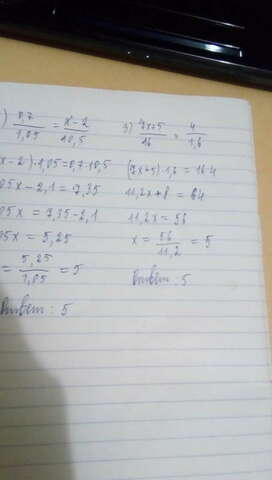 ) 0,7/1,05 = x-2/10,5
x-2)·1,05=0,7·10,5
05x-2,1=7,35
05x=7,35-2,1
05x=5,25
= 5,25/1,05 = 5
Ответ: 5
3) 7x+5/16 = 4/1,6
(7x+5)·1,6=16·4
11,2x+8=64
11,2x=56
x=56/11,2=5
Ответ: 5